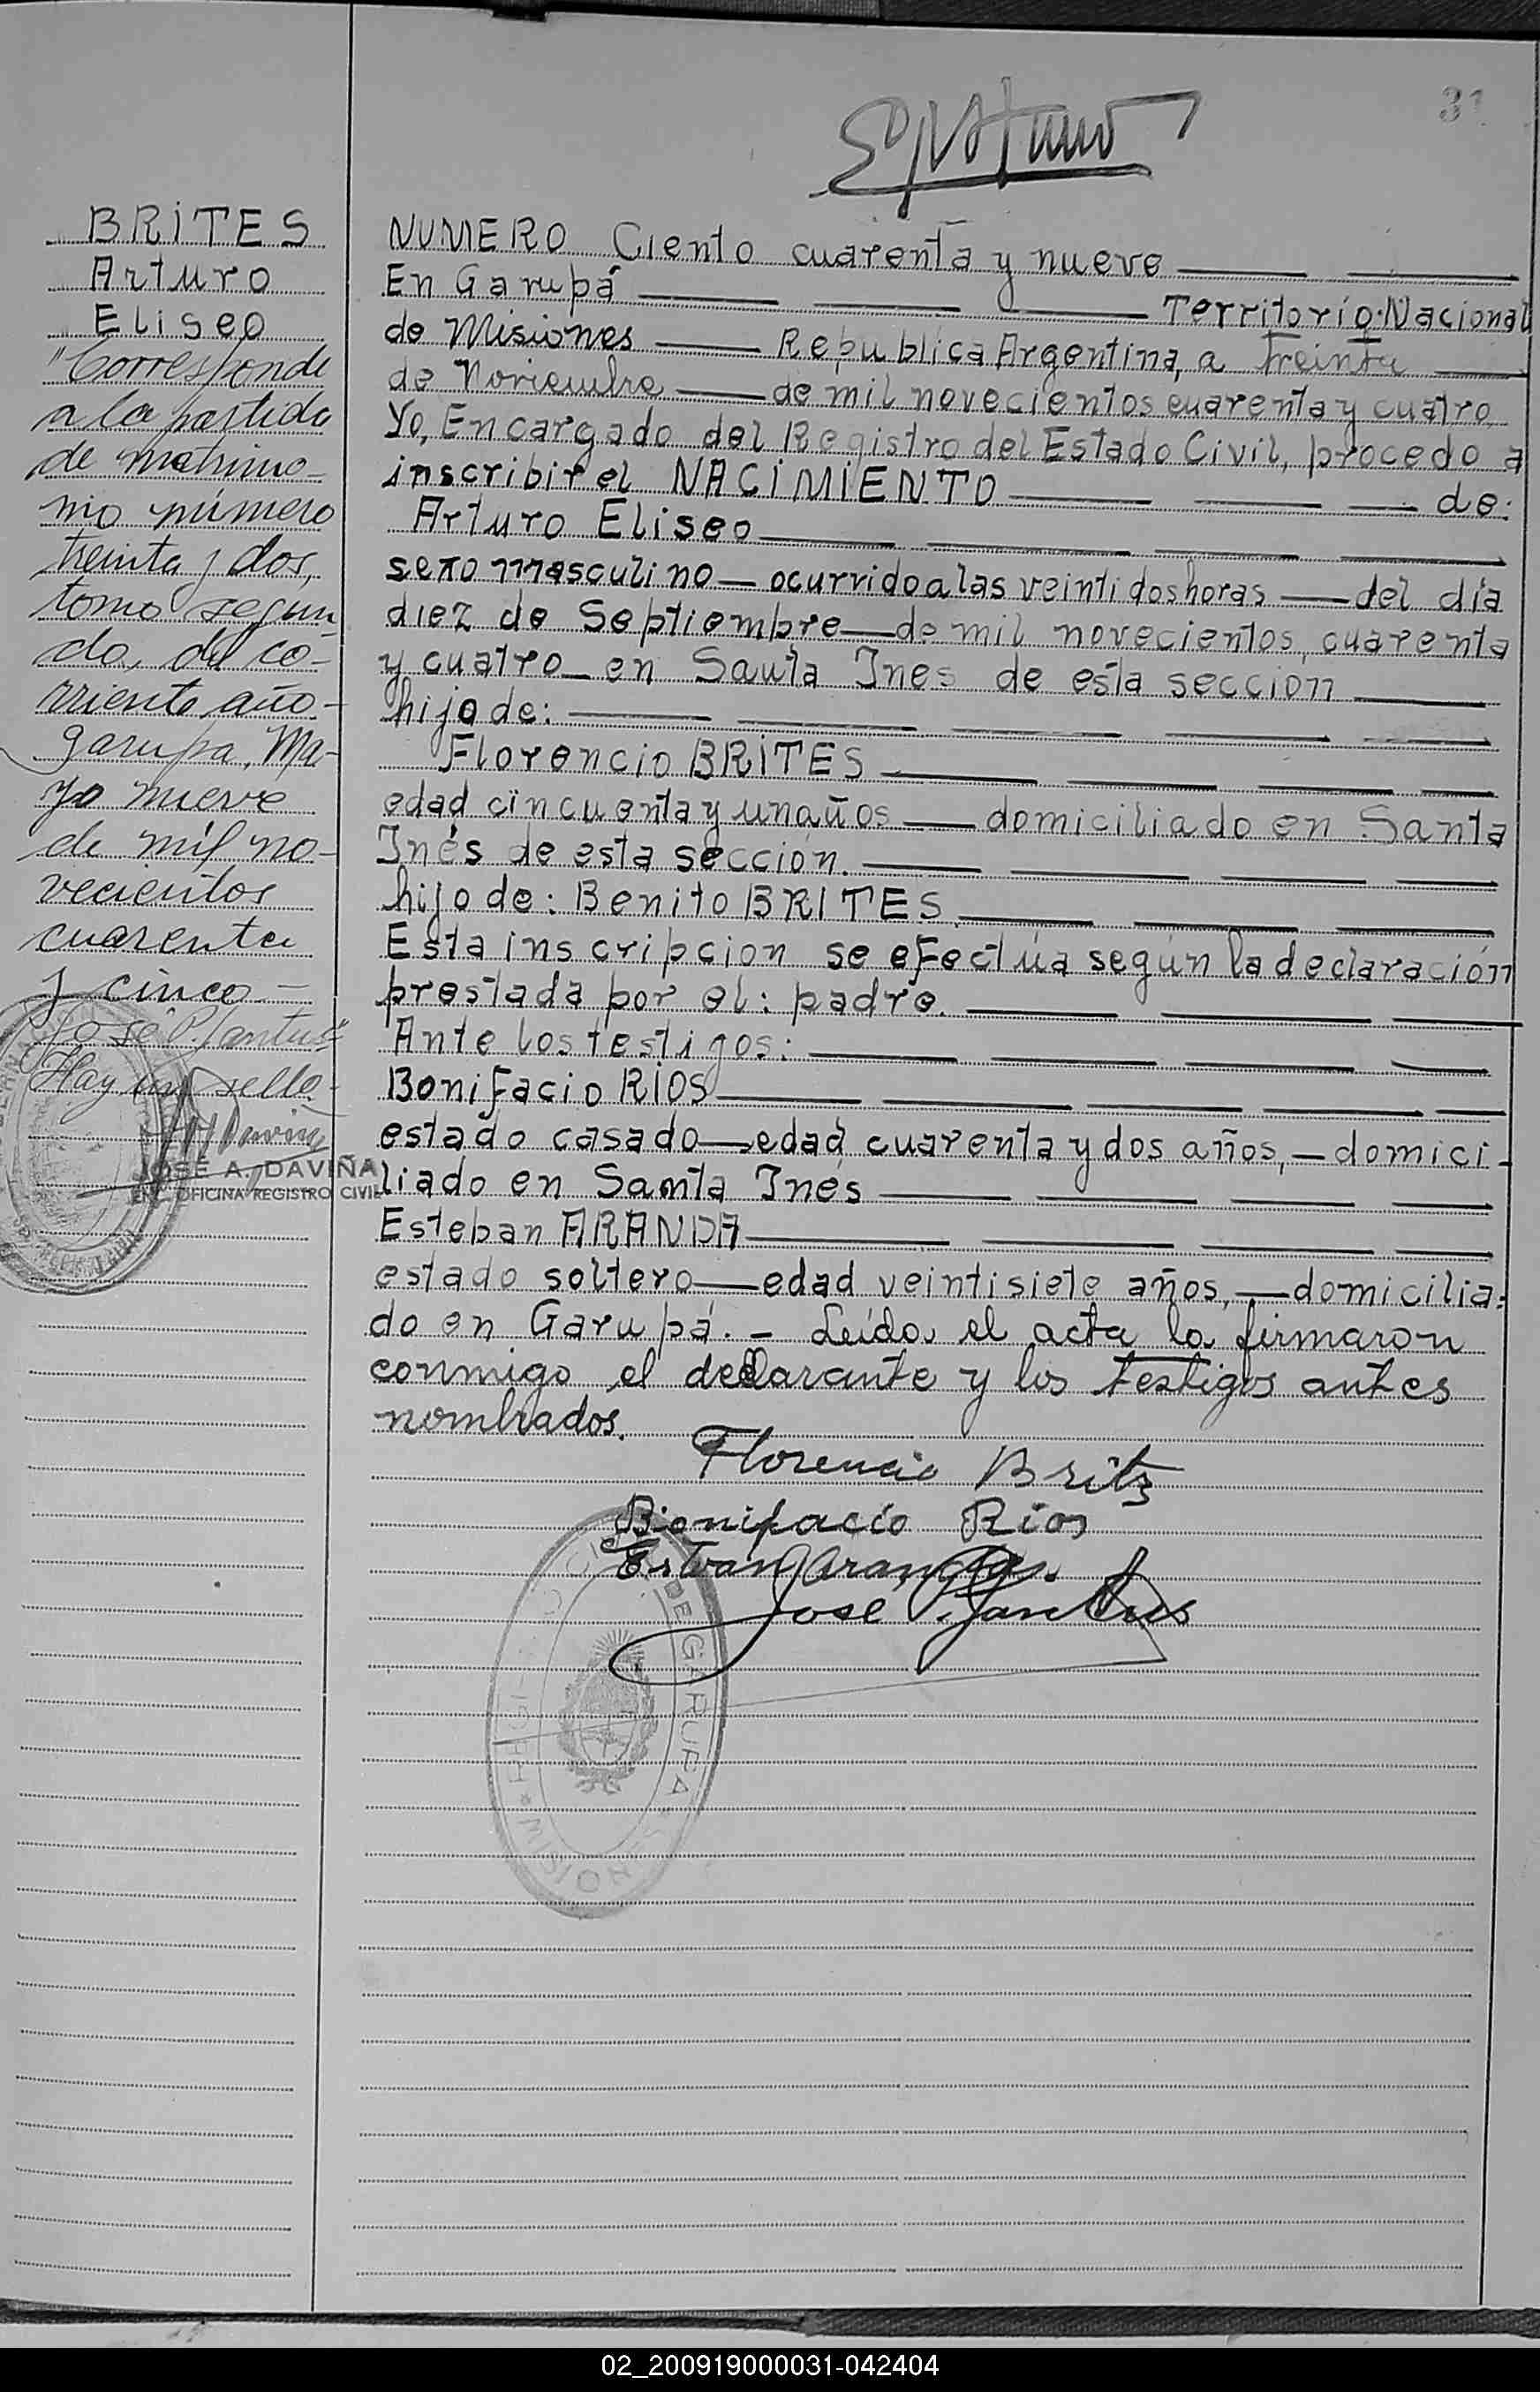 31
BRITES
Arturo
Eliseo
"Corresponde
a la partida
de matrimo-
nio número
treinta y dos,
tomo segun
do, del co-
rriente año-
garupa, Ma-
yo nueve
de mil no-
vecientos
cuarenta
y cinco-
José P. Santus"
Hay un sello.
JOSÉ A. DAVIÑA
ENC. OFICINA REGISTRO CIVIL
NUMERO Ciento cuarenta y nueve
En Garupá Territorio Nacional
de Misiones Republica Argentina, a Treinta
de Noviembre de mil novecientos cuarenta y cuatro,
Yo, Encargado del Registro del Estado Civil, procedo a
inscribir el NACIMIENTO de:
Arturo Eliseo
sexo masculino ocurrido a las veintidos horas del día
diez de Septiembre de mil novecientos, cuarenta
y cuatro en Santa Ines de esta seccion
hijo de:
Florencio BRITES
edad cincuenta y un años domiciliado en Santa
Inés de esta sección.
hijo de: Benito BRITES
Esta inscripcion se efectúa según la declaración
prestada por el: padre.
Ante los testigos:
Bonifacio RIOS
estado casado edad cuarenta y dos años, domici-
liado en Santa Inés
Esteban ARANDA
estado soltero edad veintisiete años, domicilia-
do en Garupá. - Leída el acta la firmaron
conmigo el declarante y los testigos antes
nombrados.
Florencio Britz
Bonifacio Rios
Estvan Aranda.
Jose P. Santus
DE GARUPA
02_200919000031-042404